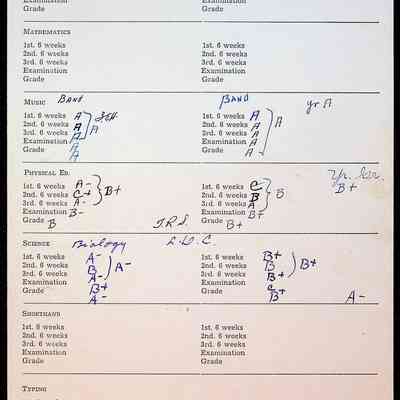 Examination Examination
Grade Grade
MATHEMATICS
1st. 6 weeks 1st. 6 weeks
2nd. 6 weeks 2nd. 6 weeks
3rd. 6 weeks 3rd. 6 weeks
Examination Examination
Grade Grade
MUSIC BAND BAND yr A
1st. 6 weeks A 1st. 6 weeks A
2nd. 6 weeks A A 2nd. 6 weeks A A
3rd. 6 weeks A 3rd. 6 weeks A
Examination A Examination A
Grade A Grade A
PHYSICAL ED. Yr. Gr.
1st. 6 weeks A- 1st. 6 weeks C B+
2nd. 6 weeks C+ B+ 2nd. 6 weeks B B
3rd. 6 weeks A- 3rd. 6 weeks A
Examination B- Examination B+
Grade B J.R.S. Grade B+
SCIENCE Biology L.D.C.
1st. 6 weeks A- 1st. 6 weeks B+
2nd. 6 weeks B A- 2nd. 6 weeks B B+
3rd. 6 weeks A- 3rd. 6 weeks B+
Examination B+ Examination C
Grade A- Grade B+ A-
SHORTHAND
1st. 6 weeks 1st. 6 weeks
2nd. 6 weeks 2nd. 6 weeks
3rd. 6 weeks 3rd. 6 weeks
Examination Examination
Grade Grade
TYPING